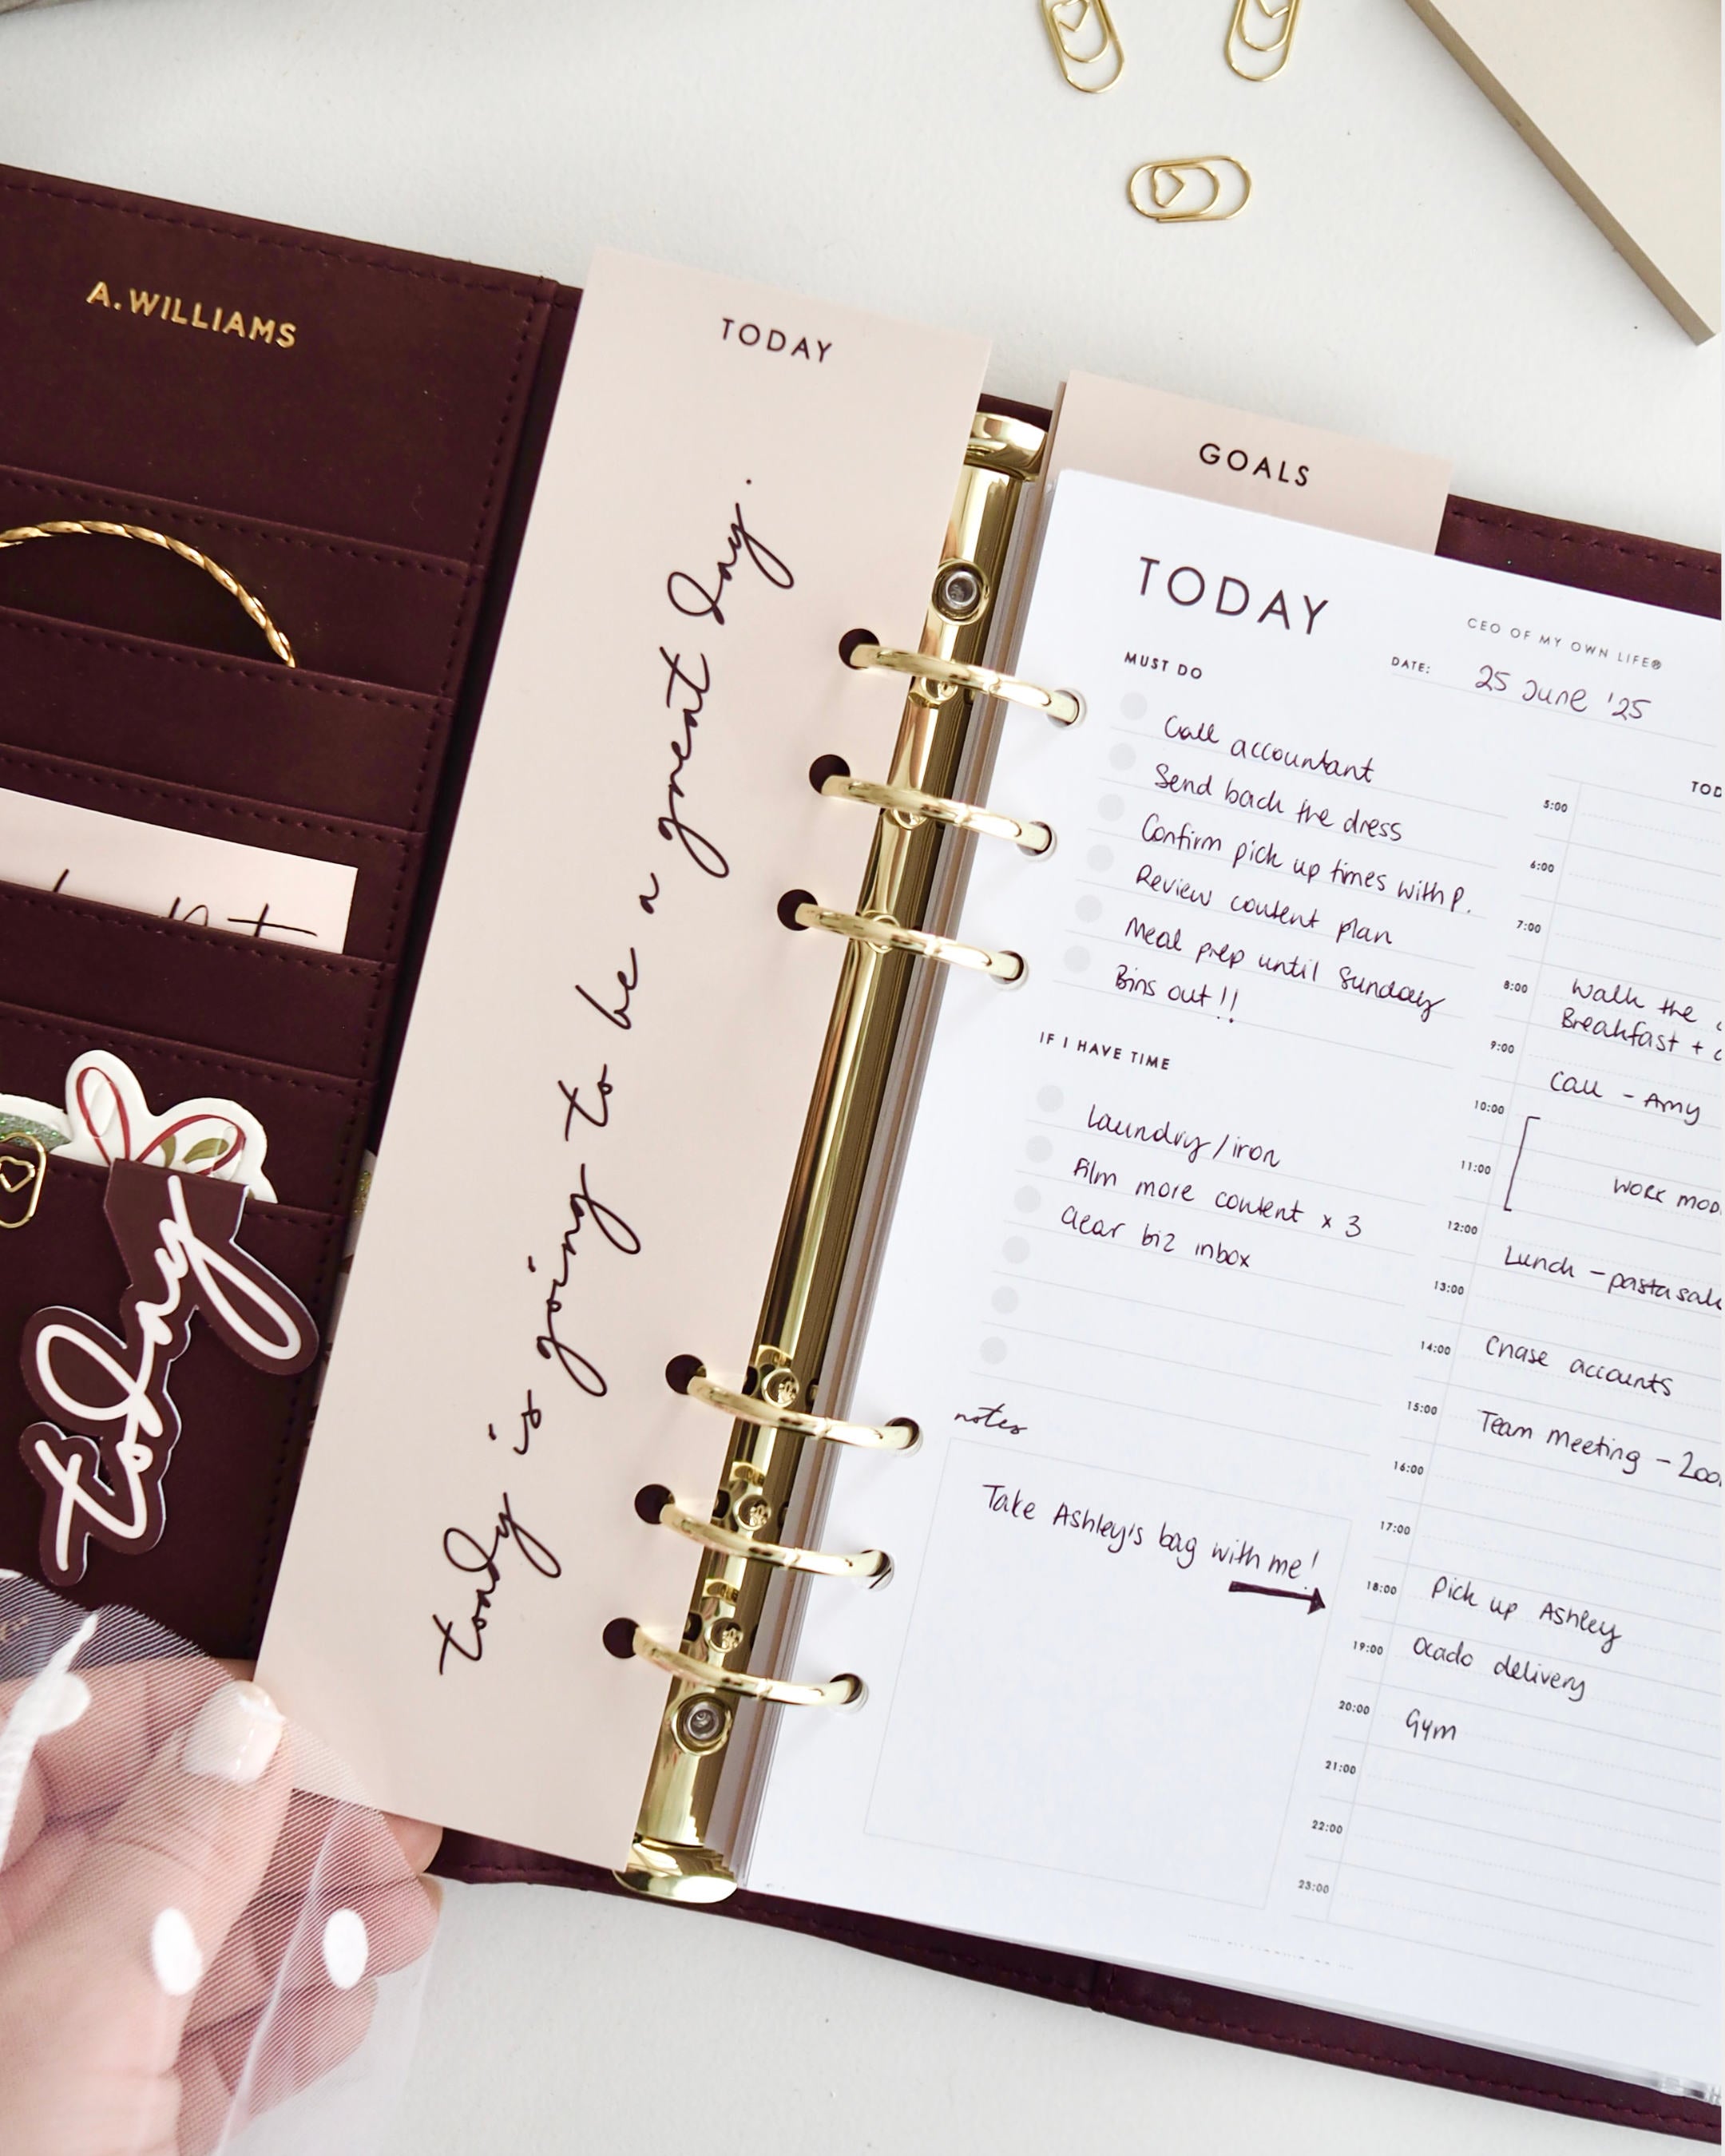 A. WILLIAMS
today
TODAY
today is going to be a great day.
GOALS
TODAY
CEO OF MY OWN LIFE®
DATE: 25 June '25
MUST DO
Call accountant
Send back the dress
Confirm pick up times with P.
Review content plan
Meal prep until Sunday
Bins out!!
IF I HAVE TIME
Laundry/iron
Film more content x 3
Clear biz inbox
notes
Take Ashley's bag with me!
5:00
6:00
7:00
8:00 Walk the
Breakfast +
9:00
Call - Amy
10:00
11:00 WORK
12:00
Lunch - pasta
13:00
14:00 Chase accounts
15:00 Team meeting -
16:00
17:00
18:00 Pick up Ashley
19:00 Ocado delivery
20:00 Gym
21:00
22:00
23:00